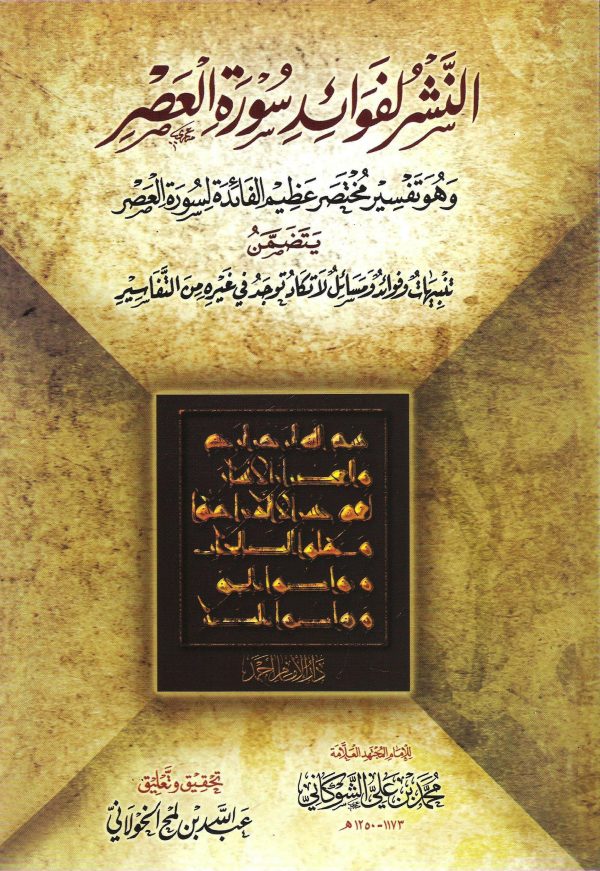 النَّشْرُ لفَوَائِدِ سُورَةِ العَصْرِ
وَهُوَ تَفْسِيرٌ مُخْتَصَر عَظِيمُ الفَائِدَةِ لِسُورَةِ العَصْرِ
يَتَضَمَّنُ
تنبيهاتٌ وفوائدُ ومَسَائِلُ لا تكادُ توجَدُ في غَيْرِهِ مِنَ التَّفَاسِيْرِ
بسم الله الرحمن الرحيم
والعصر إن الإنسان
لفي خسر إلا الذين آمنوا
وعملوا الصالحات
وتواصوا بالحق
وتواصوا بالصبر
دار الإمام أحمد
للإمام المجتهد العلَّامة
محمَّد بن عَلي الشَّوكَاني
١١٧٣-١٢٥٠هـ
تحقيق وتَعْليق
عبد اللَّه بن لمح الخولاني